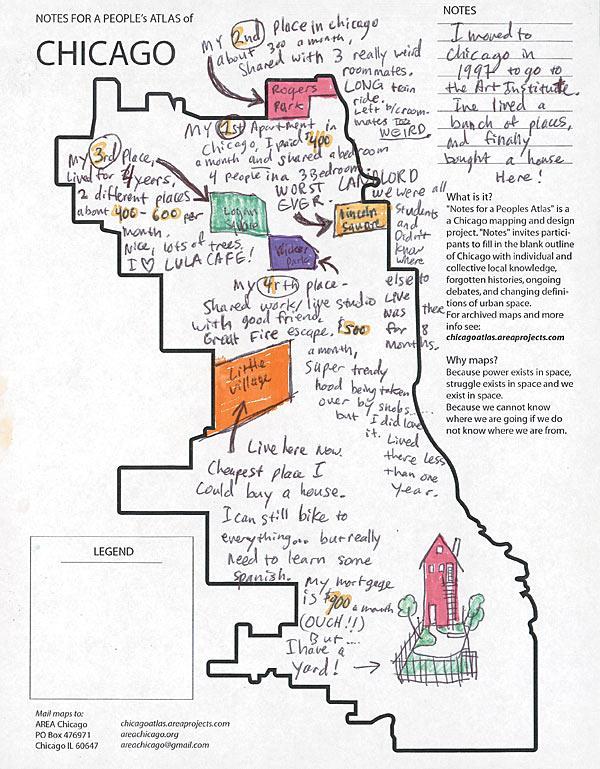 NOTES FOR A PEOPLE'S ATLAS of
CHICAGO
NOTES
I moved to
Chicago in
1997 to go to
the Art Institute.
I've lived a
bunch of places,
and finally
bought a house
Here!
My 2nd Place in chicago
about 300 a month,
Shared with 3 really weird
roommates.
LONG train
ride.
Left b/c room-
mates too
WEIRD.
Rogers
Park
MY 1st Apartment in
Chicago, I paid $400
a month and shared a bedroom
4 people in a 3 Bedroom
WORST LANDLORD
EVER.
we were all
Students
and
Didn't
know
where
else to
Live
was there
for 8
months.
Lincoln
Square
My 3rd place,
Lived for 4 years,
2 different places
about 400-600 per
month.
Nice, lots of trees.
I ♡ LULA CAFE!
Logan
Square
Wicker
Park
My 4rth place-
Shared work/live studio
with good friend.
Great Fire escape. $500
a month,
Super trendy
hood being taken
over by snobs.....
but I did love
it. Lived
there less
than one
year.
Little
Village
Live here Now.
Cheapest place I
Could buy a house.
I can still bike to
everything... but really
Need to learn some
spanish.
My mortgage
is $900 a month
(OUCH!!)
But....
I have a
yard! →
What is it?
"Notes for a Peoples Atlas" is
a Chicago mapping and design
project. "Notes" invites partici-
pants to fill in the blank outline
of Chicago with individual and
collective local knowledge,
forgotten histories, ongoing
debates, and changing defini-
tions of urban space.
For archived maps and more
info see:
chicagoatlas.areaprojects.com
Why maps?
Because power exists in space,
struggle exists in space and we
exist in space.
Because we cannot know
where we are going if we do
not know where we are from.
LEGEND
Mail maps to:
AREA Chicago
PO Box 476971
Chicago IL 60647
chicagoatlas.areaprojects.com
areachicago.org
areachicago@gmail.com